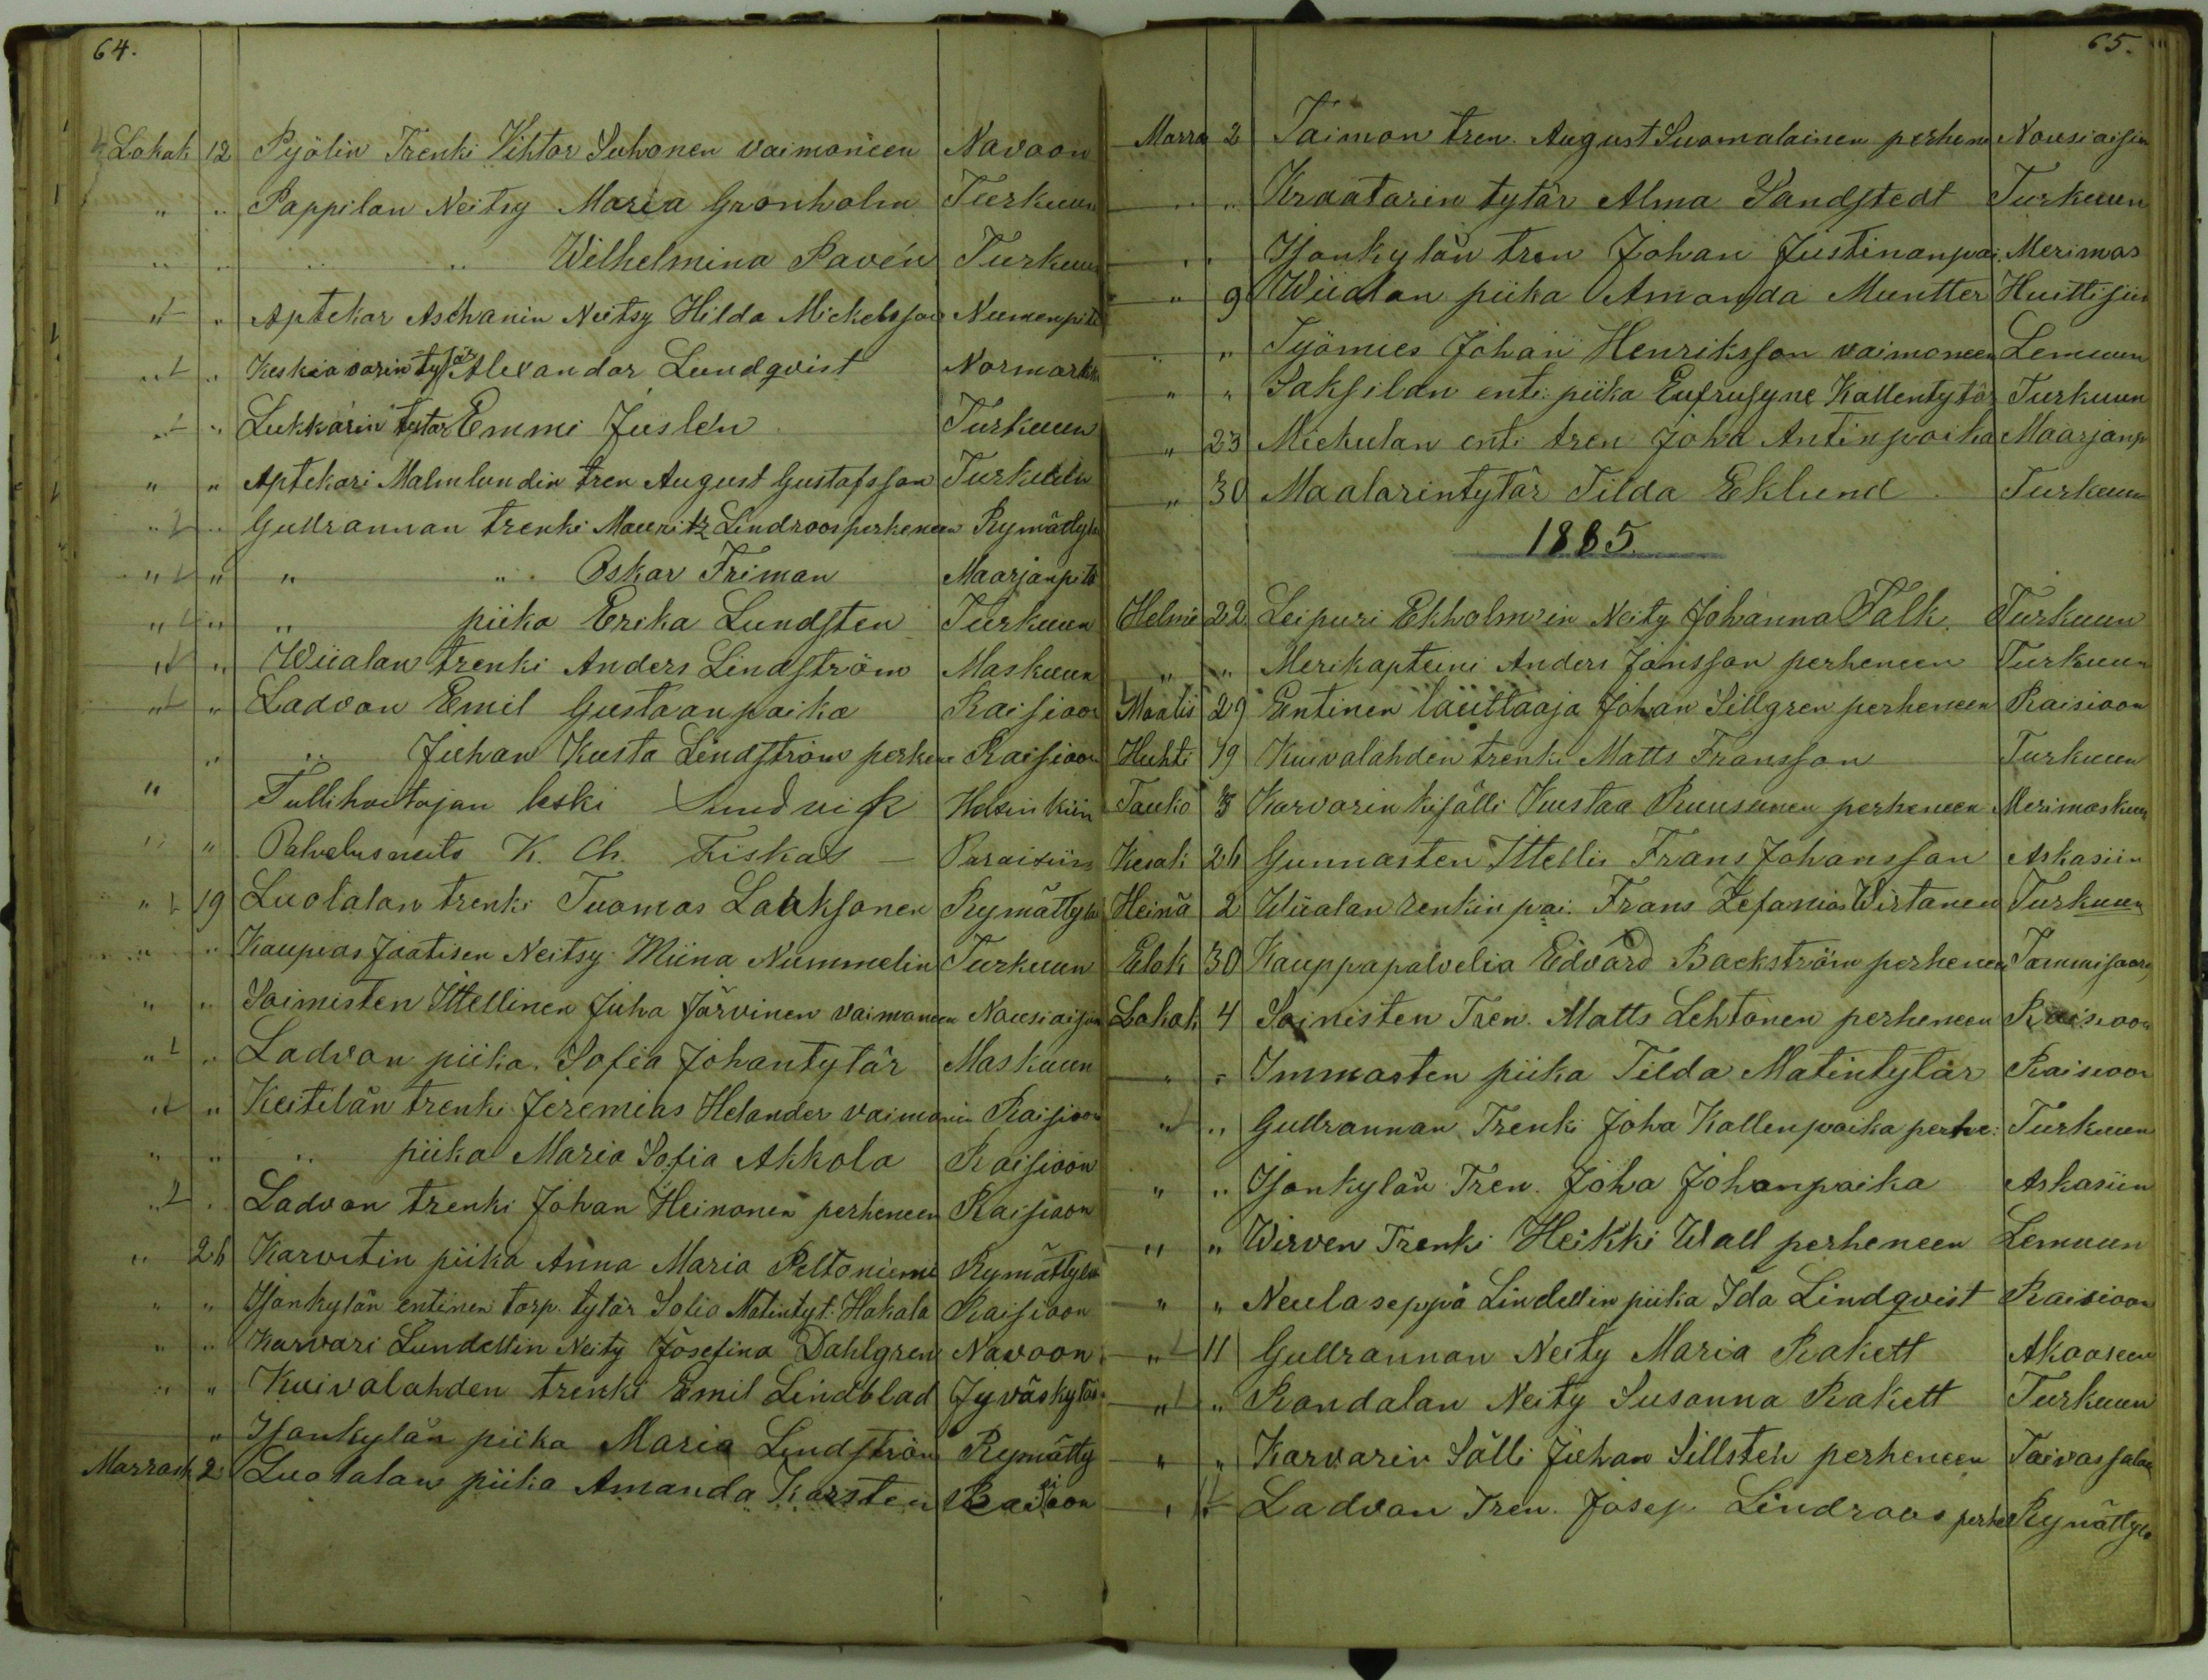 64.
Lokak 12 Pyölin Trenki Vihtor Suhonen vaimoneen Navoon
" " Pappilan Neitsy Maria Grönholm Turkuun
" " " " Wilhelmina Pavén Turkuun
" " Aptekar Aschanin Neitsy Hilda Mickelsson Numenpit
" " tytär Alexandar Lundqvist Normark
" " Lukkarin tytär Emmi Juslén Turkuun
" " Aptekari Malmlundin tren August Gustafsson Turkuun
" " Gullrannan trenki Mauritz Lindroos perheneen Rymättylä
" " " " Oskar Friman Maarjanpit
" " " piika Erika Lundsten Turkuun
" " Wiialan trenki Anders Lindström Maskuun
" " Ladvon Emil Gustaanpoika Raisioon
" " Juhan Kusta Lindström perhene Raisioon
" Tullihoitajan leski Sundvik Helsinkiin
" " Palvelusneito K. Ch. Fiskas — Paraisiin
" 19 Luolalan trenki Tuomas Lauksonen Rymättylä
" " Kaupias Jaatisen Neitsy Miina Nummelin Turkuun
" " Soimisten Ittellinen Juha Järvinen vaimoneen Nousiaisiin
" " Ladvon piika. Sofia Johantytär Maskuun
" " Keitilän trenki Jeremias Helander vaimonin Raisioon
" " " piika Maria Sofia Akkola Raisioon
" " Ladvon trenki Johan Heinonen perheneen Raisioon
" 26 Karvetin piika Anna Maria Peltoniemi Rymättylä
" " Isonkylän entinen torp. tytär Sofia Matintyt. Hakala Raisioon
" " Karvari Lundellin Neity Josefina Dahlgren Navoon
" " Kuivalahden trenki Emil Lindblad Jyväskylä
" Isonkylän piika Maria Lindström Rymätty
Marrask 2 Luolalan piika Amanda Karsten Raisioon
65.
Marra 2 Taimon tren. August Suomalainen perhene Nousiaisiin
" " Kraatarin tytär Alma Sandstedt Turkuun
" " Isonkylän tren Johan Justinanpoi. Merimas
" 9 Wiialan piika Amanda Muntter Huittisiin
" " Työmies Johan Henriksson vaimoneen Lemuun
" " Saksilan enti. piika Eufrusyne Kallentytär Turkuun
" 23 Mickulan enti tren Joha Antinpoika Maarjanp
" 30 Maalarintytär Tilda Eklund Turkuun
1885.
Helmi 22 Leipuri Ekholmin Neity Johanna Falk. Turkuun
" " Merikapteini Anders Jansson perheneen Turkuun
Maalis 29 Entinen lauttaaja Johan Sillgren perheneen Raisioon
Huhti 19 Kuivalahden trenki Matts Fransson Turkuun
Touko 3 Karvarin kisälli Kustaa Ruusunen perheneen Merimaskuun
Kesäk 26 Gunnarsten Ittellis Frans Johansson Askasiin
Heinä 2 Wiialan renkin poi. Frans Zefanias Wirtanen Turkuun
Elok 30 Kauppapalvelia Edvard Backström perheneen Tammisaareen
Lokak 4 Soinisten Tren. Matts Lehtonen perheneen Raisioon
" " Immasten piika Tilda Matintytär Raisioon
" " Gullrannan Trenki Joha Kallenpoika perhe: Turkuun
" " Isonkylän Tren. Joha Johanpoika Askasiin
" " Wirven Trenki Heikki Wall perheneen Lemuun
" " Neulaseppä Lindellin piika Ida Lindqvist Raisioon
" 11 Gullrannan Neity Maria Rakett Akaaseen
" " Randalan Neity Susanna Rakett Turkuun
" " Karvarin Sälli Juhan Sillsten perheneen Taivassalo
" " Ladvon Tren. Josep Lindroos perhe Rymättylä